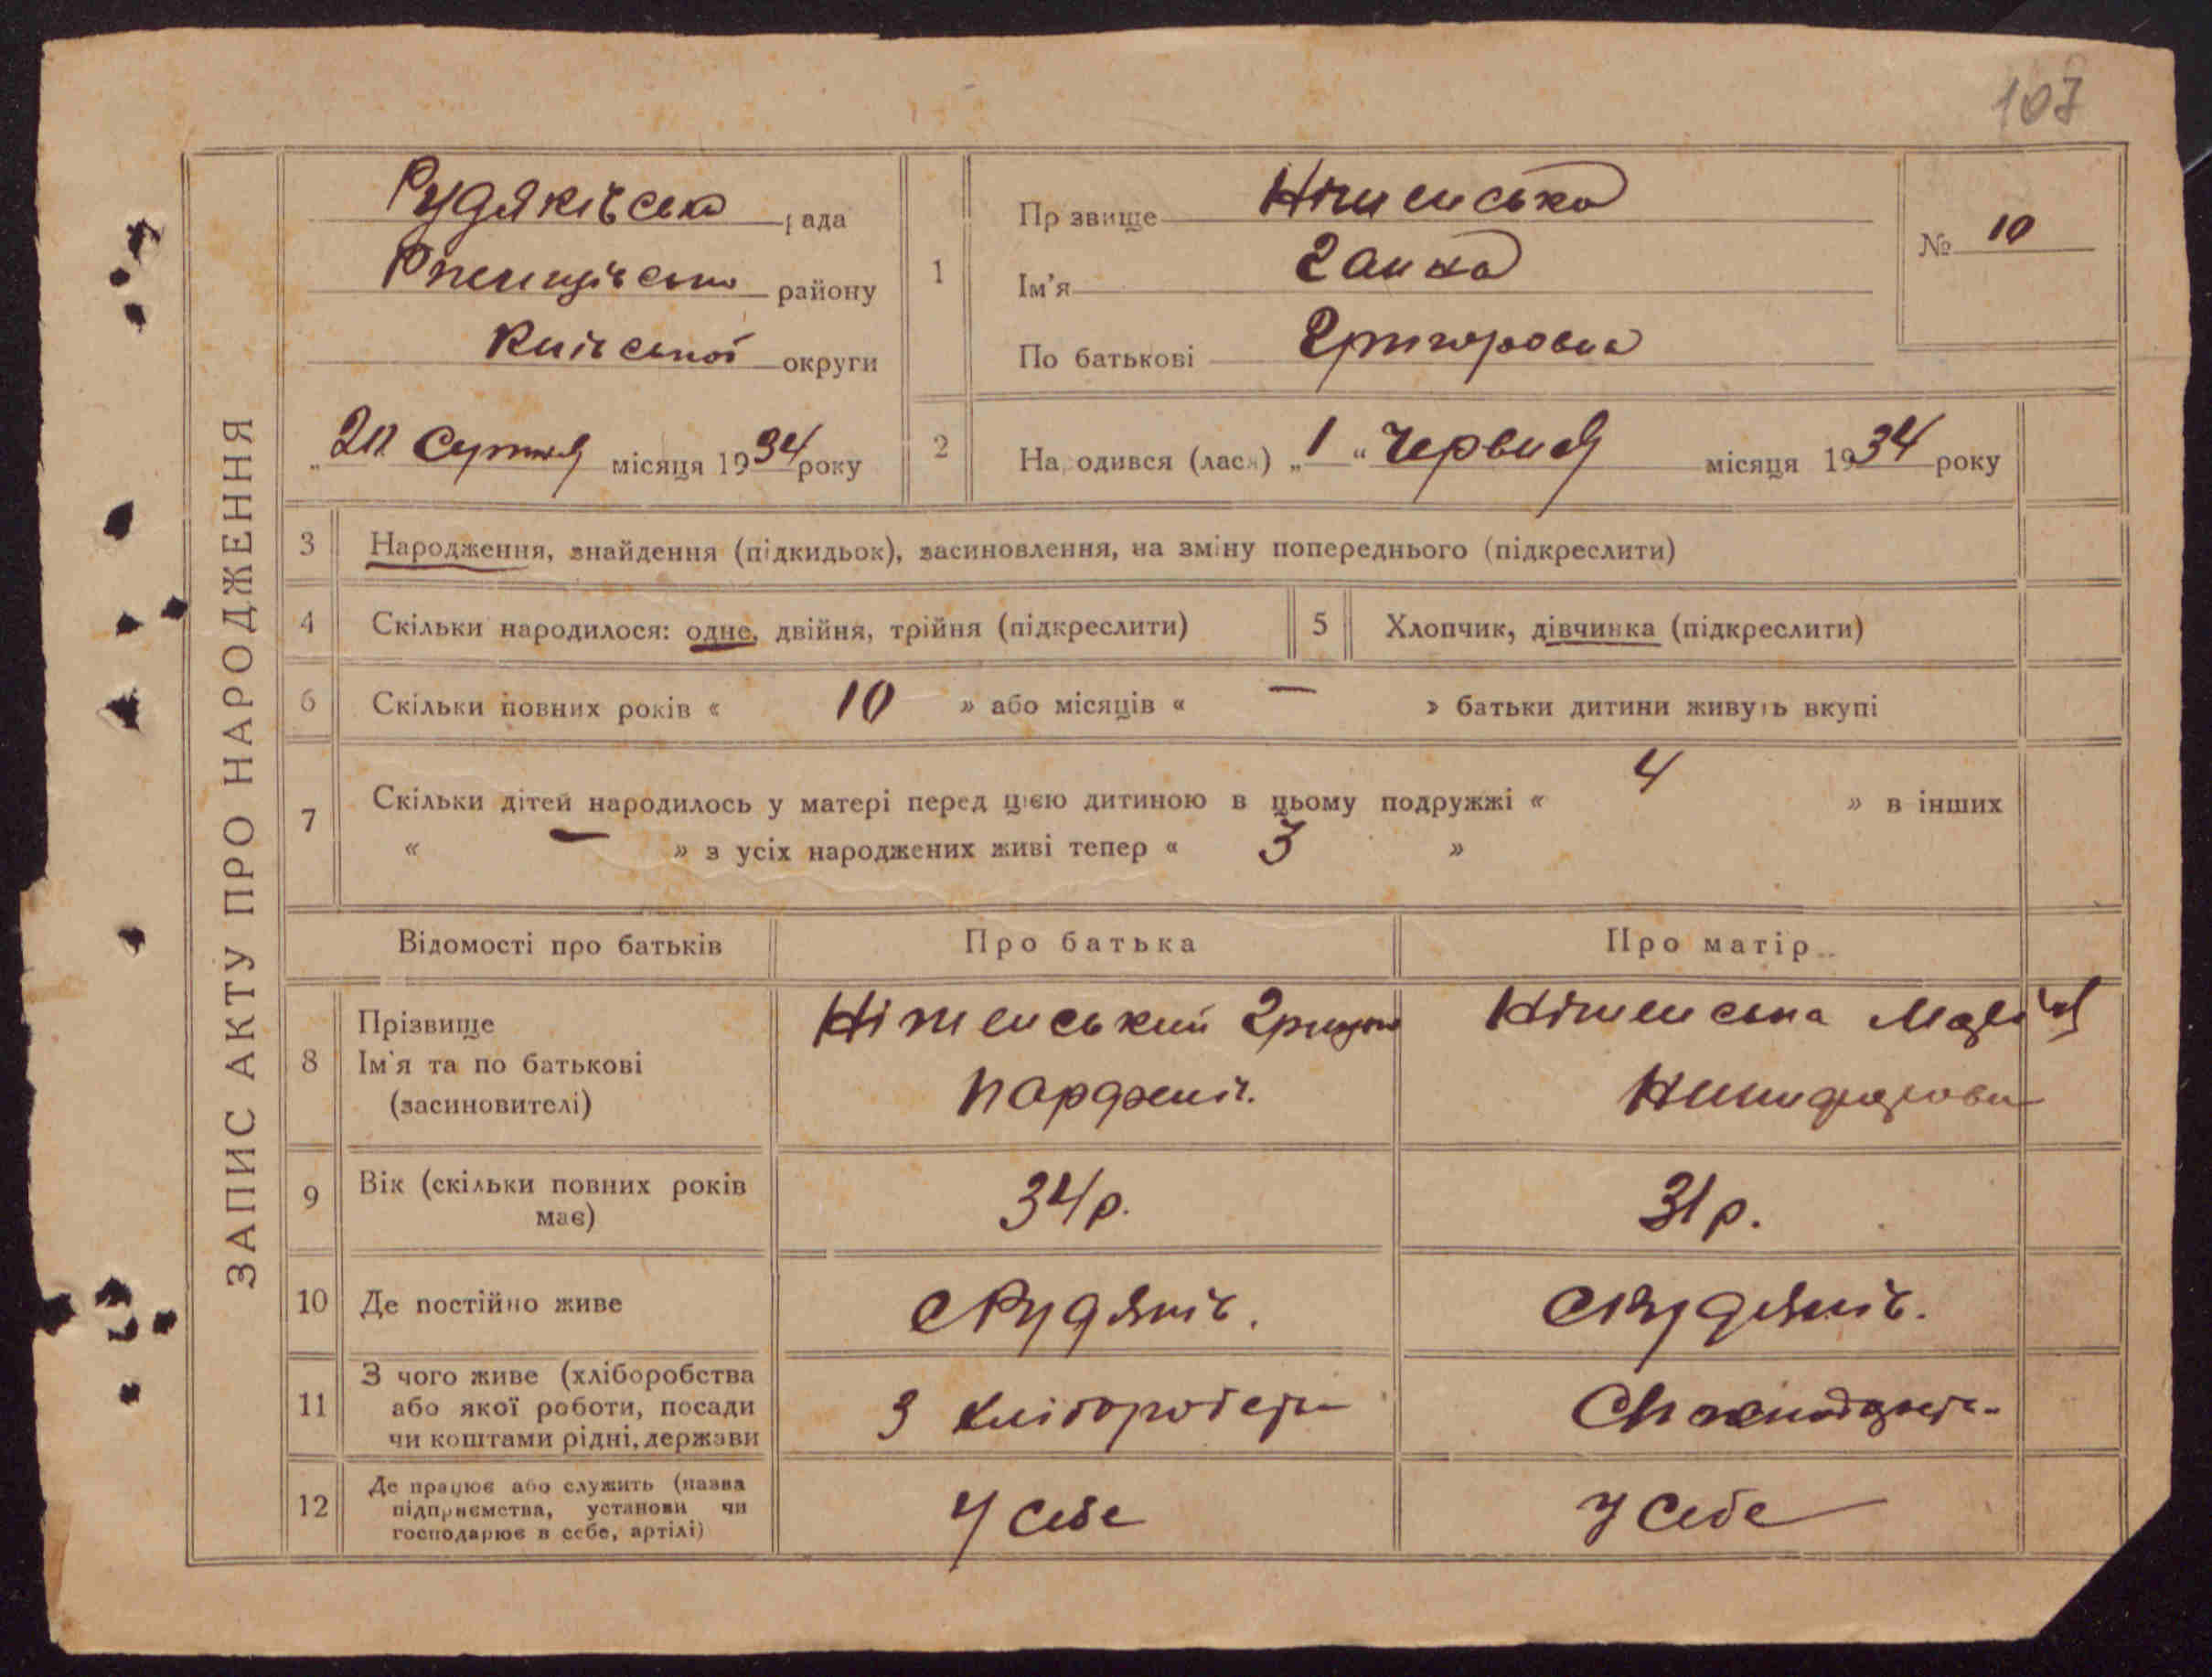 107
ЗАПИС АКТУ ПРО НАРОДЖЕННЯ
Рудяківська рада
району
Київської округи
місяця 1934 року
1
Прізвище Ніженська
Ім'я Ганна
По батькові Григоровна
№ 10
2
Народився (лася) „1“ Червня місяця 1934 року
3 Народження, знайдення (підкидьок), засиновлення, на зміну попереднього (підкреслити)
4 Скільки народилося: одне, двійня, трійня (підкреслити)
5 Хлопчик, дівчинка (підкреслити)
6 Скільки повних років « 10 » або місяців « — » батьки дитини живуть вкупі
7 Скільки дітей народилось у матері перед цією дитиною в цьому подружжі « 4 » в інших
« — » з усіх народжених живі тепер « 3 »
Відомості про батьків Про батька Про матір
8
Прізвище
Ім'я та по батькові
(засиновителі)
Ніженський
Ніженська
9 Вік (скільки повних років
має)
34 р.
31 р.
10 Де постійно живе
с Рудяків.
с Рудяків.
11 З чого живе (хліборобства
або якої роботи, посади
чи коштами рідні, держави
З
12 Де працює або служить (назва
підприємства, установи чи
господарює в себе, артілі)
У себе
У себе